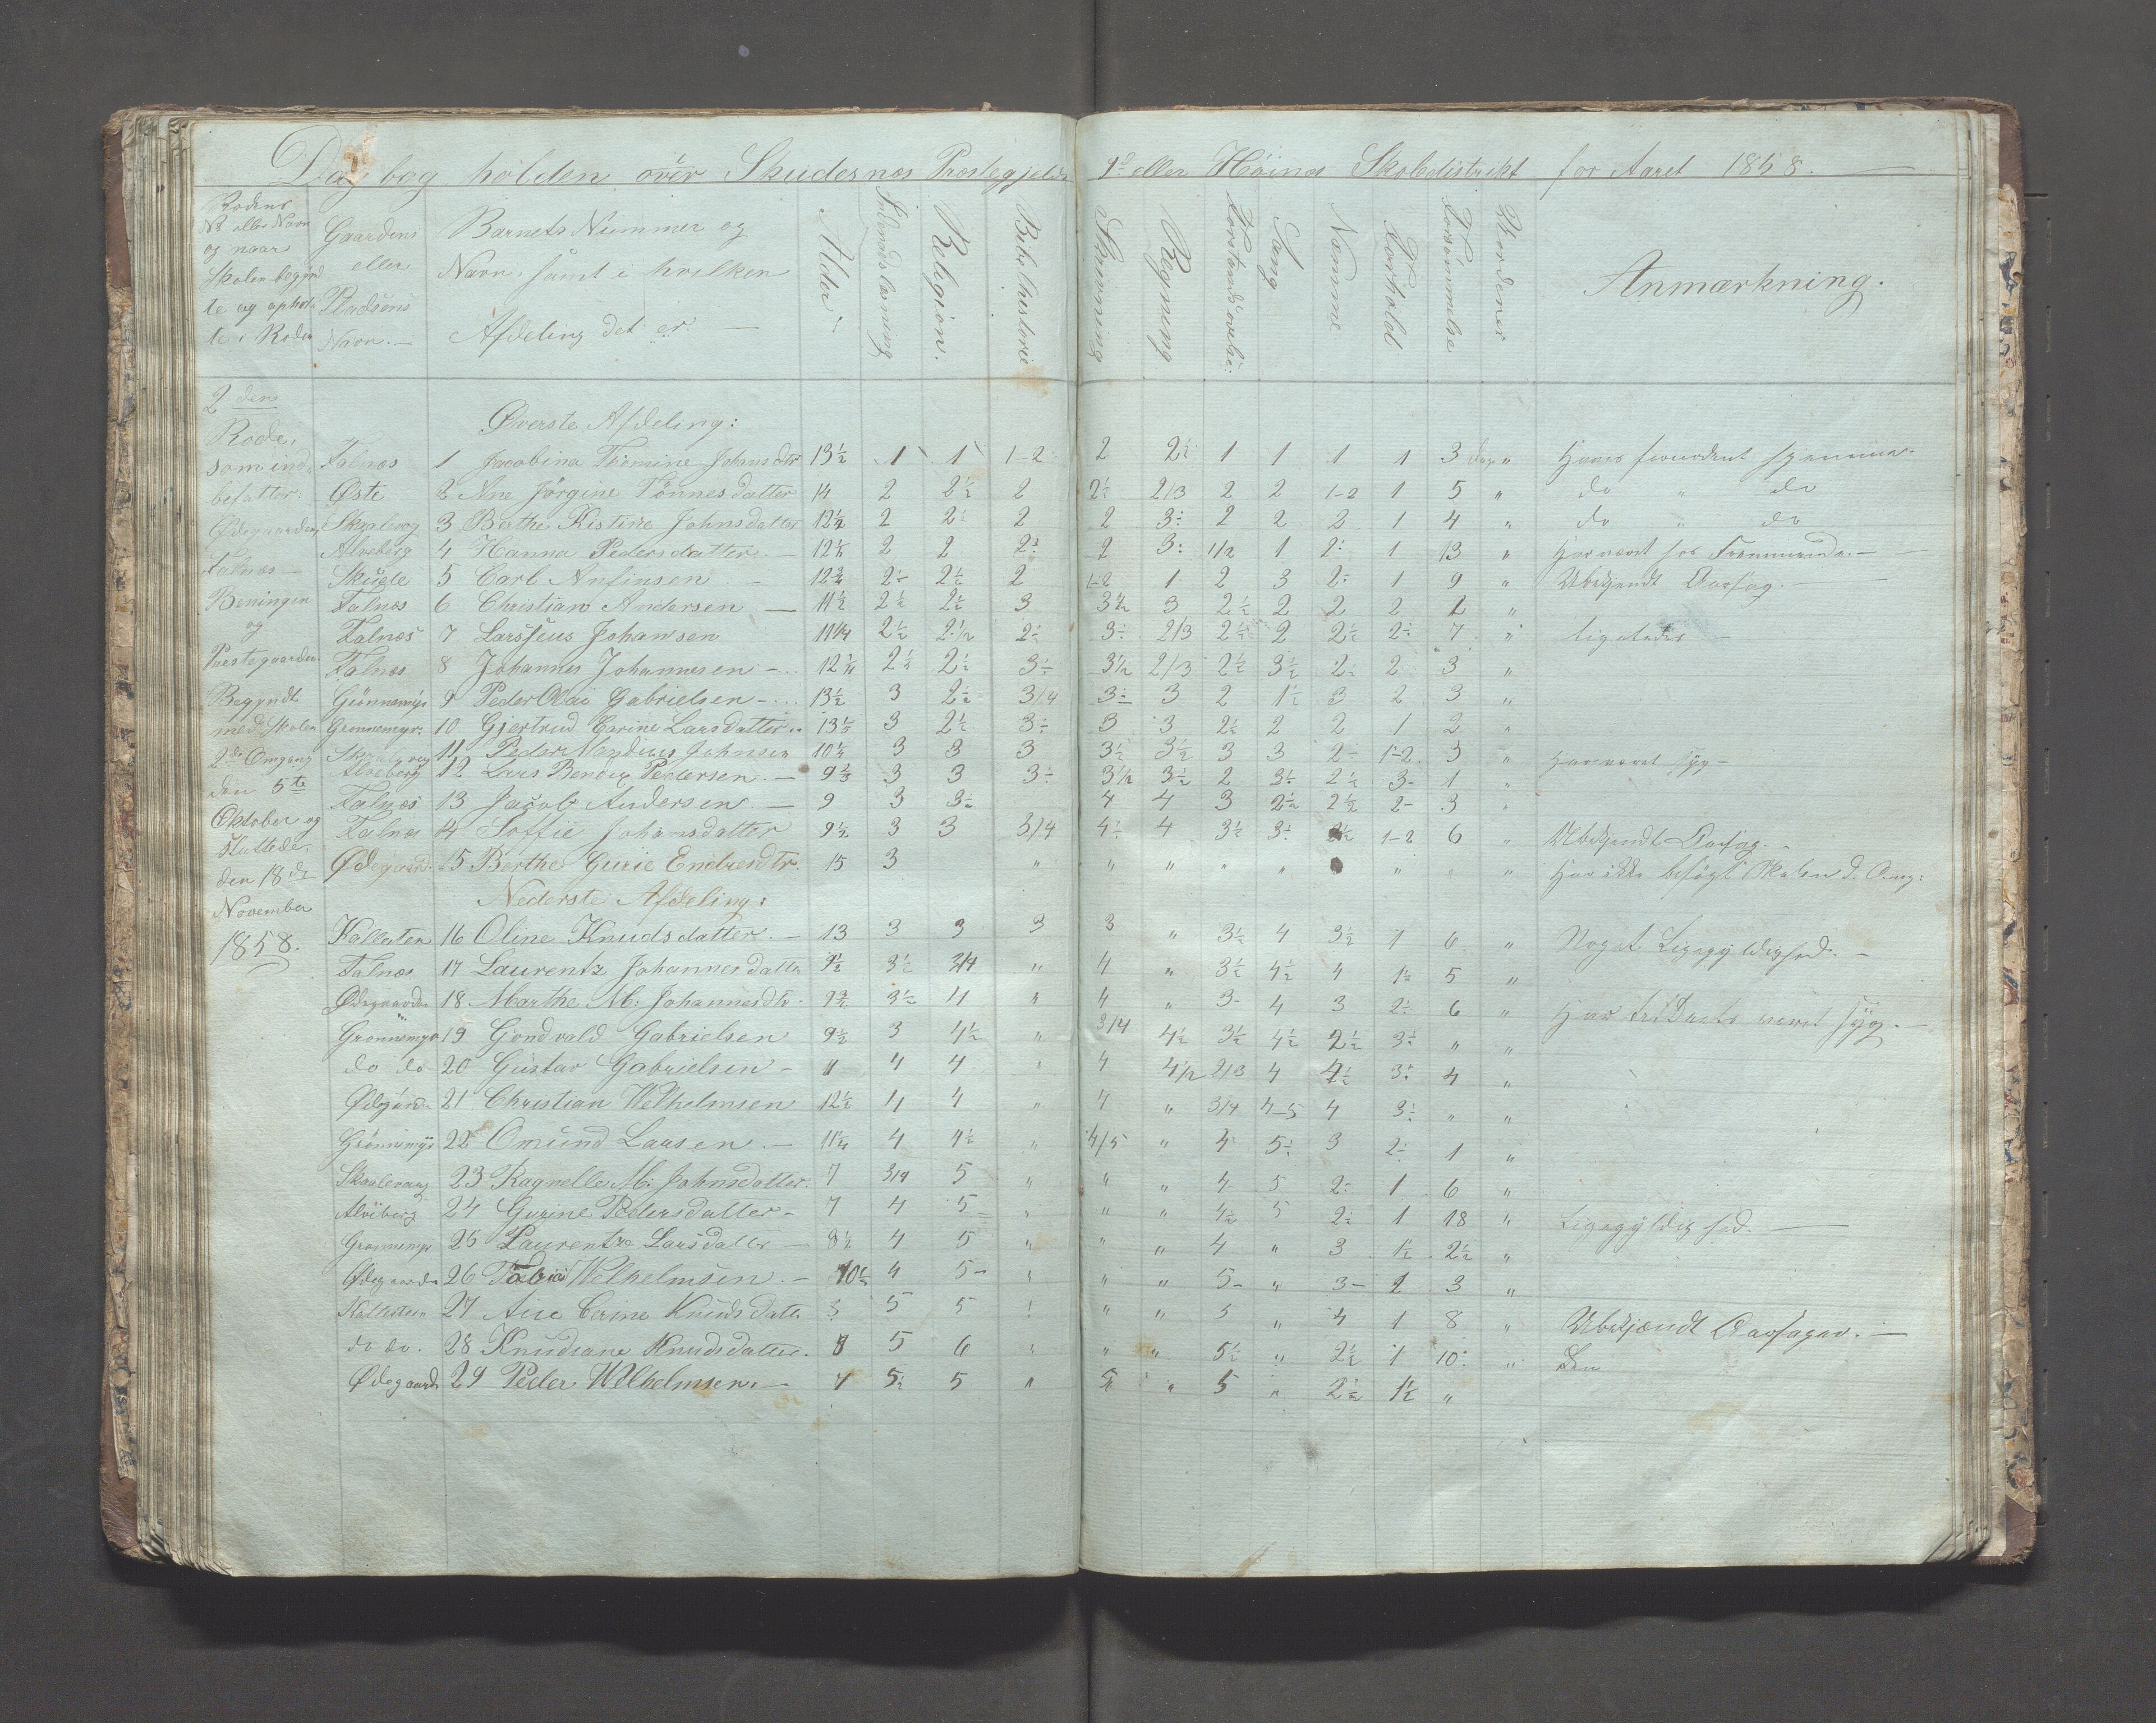 Dagbog holden over Skudesnæs Præstegjelds 1ste eller Høines Skoledistrikt for Aaret 1858.
Rodens No eller Navn og naar Skolen begyndte og ophørte i Roden
Gaardens eller Pladsens Navn.
Barnets Nummer og Navn, samt i hvilken Afdeling det er.
Alder
Indenadslæsning
Religion.
Bibelhistorie
Skrivning
Regning
Forstandsøvelse.
Sang
Nemme
Forhold
Forsømmelse
Anmærkning.
2den
Rode,
som ind-
befatter
Ødegaarden
Falnæs
Beningen
og
Præstegaarden.
Begyndt
med Skolen
2den Omgang
den 5te
Oktober og
sluttede
den 18de
November
1858.
Øverste Afdeling:
Falnæs 1 Jacobine Johnsdtr 13½ 1 1 1-2 2 2½ 1 1 1 1 3 dage "
Øste 2 Ane Jørgine Tønnesdatter 14 2 2½ 2 2½ 2/3 2 2 1-2 1 5 " do " do
3 Berthe Kistine Johnsdatter 12½ 2 2½ 2 2 3÷ 2 2 2 1 4 " do " do
Alveberg 4 Hanna Pedersdatter 2 2 2 1/2 1 1 13 " Har været hos Fremmende.
Skudle 5 Carl Anfinsen 2½ 2½ 2 1-2 1 2 3 2÷ 1 9 " Ubekjendt Aarsag.
Falnæs 6 Christian Andersen 11½ 2½ 2½ 3 3½ 3 2½ 2 2 2 2 "
Falnæs 7 Johansen 11¼ 2½ 2½ 2½ 3÷ 2/3 2½ 2 2½ 2÷ 7 " Ligeledes
Falnæs 8 Johannes Johannesen 2½ 2½ 3÷ 3½ 2/3 2½ 3½ 2÷ 2 3 "
Grønnemyr 9 Peder Olai Gabrielsen 13½ 3 2½ 3/4 3÷ 3 2 1½ 3 2 3 "
Grønnemyr 10 Gjertrud Carine Larsdatter 13½ 3 2½ 3÷ 3 3 2½ 2 2 1 2 "
11 Peder Johnsen 10½ 3 3 3 3½ 3½ 3 3 2- 1-2 3 " Har været syg
Alveberg 12 Lars Bendix Pedersen 3 3 3÷ 3½ 3½ 2 3½ 2½ 3- 1 "
Falnæs 13 Jacob Andersen 9 3 3½ 4 4 3 2½ 2½ 2- 3 "
Falnæs 14 Soffie Johansdatter 9½ 3 3 3/4 4÷ 4 3½ 3÷ 1-2 6 " Ubekjendt Aarsag.
Ødegaard 15 Berthe Gurie Endresdtr. 15 3 " " " " " " " " Har ikke besøgt Skolen d. Omg:
Nederste Afdeling:
Kallesten 16 Oline Knudsdatter 13 3 3 3 3 " 3½ 4 3½ 1 6 " Noget Ligegyldighed.
Falnæs 17 Laurentz Johannesdatter 9½ 3½ 3/4 " 4 " 3½ 4½ 4 1÷ 5 "
Ødegaarden 18 Marthe M: Johannesdtr 3½ 4 " 4 " 3- 4 3 2÷ 6 " syg.
Grønnemyr 19 Gabrielsen 9½ 3 4½ " 3/4 4½ 3½ 4½ 2½ 3÷ " "
do do 20 Gustav Gabrielsen 11 4 4 " 4 4½ 2/3 4 4½ 3÷ 4 "
Ødegaard 21 Christian Welhelmsen 12½ 4 4 " 4 " 3/4 4-5 4 3÷ " "
Grønnemyr 22 Omund Larsen 4 4½ " 4/5 " 4 5÷ 3 2÷ 1 "
Skaalevaag 23 Ragnelle M: Johnsdatter 7 3/4 5 " " " 4 5 2÷ 1 6 "
Alveberg 24 Gurine Pedersdatter 7 4 5- " " " 4½ 5 2½ 1 18 " Ligegyldighed.
Grønnemyr 25 Laurentze Larsdatter 8½ 4 5 " " " 4 " 3 1÷ 2½ "
Ødegaarden 26 Tobias Welhelmsen 10½ 4 5- " " " 5- " 3- 2 3 "
Kallesten 27 Ane Cerine Knudsdatter 8 5 5 " " " 5 " 4 1 8 " Ubekjendt Aarsager.
do do. 28 Knudiane Knudsdatter. 5 6 " " " 5½ " 2½ 1 10 "
Ødegaard 29 Peder Welhelmsen 7 5½ 5 " " 5 " 2½ 1½ "